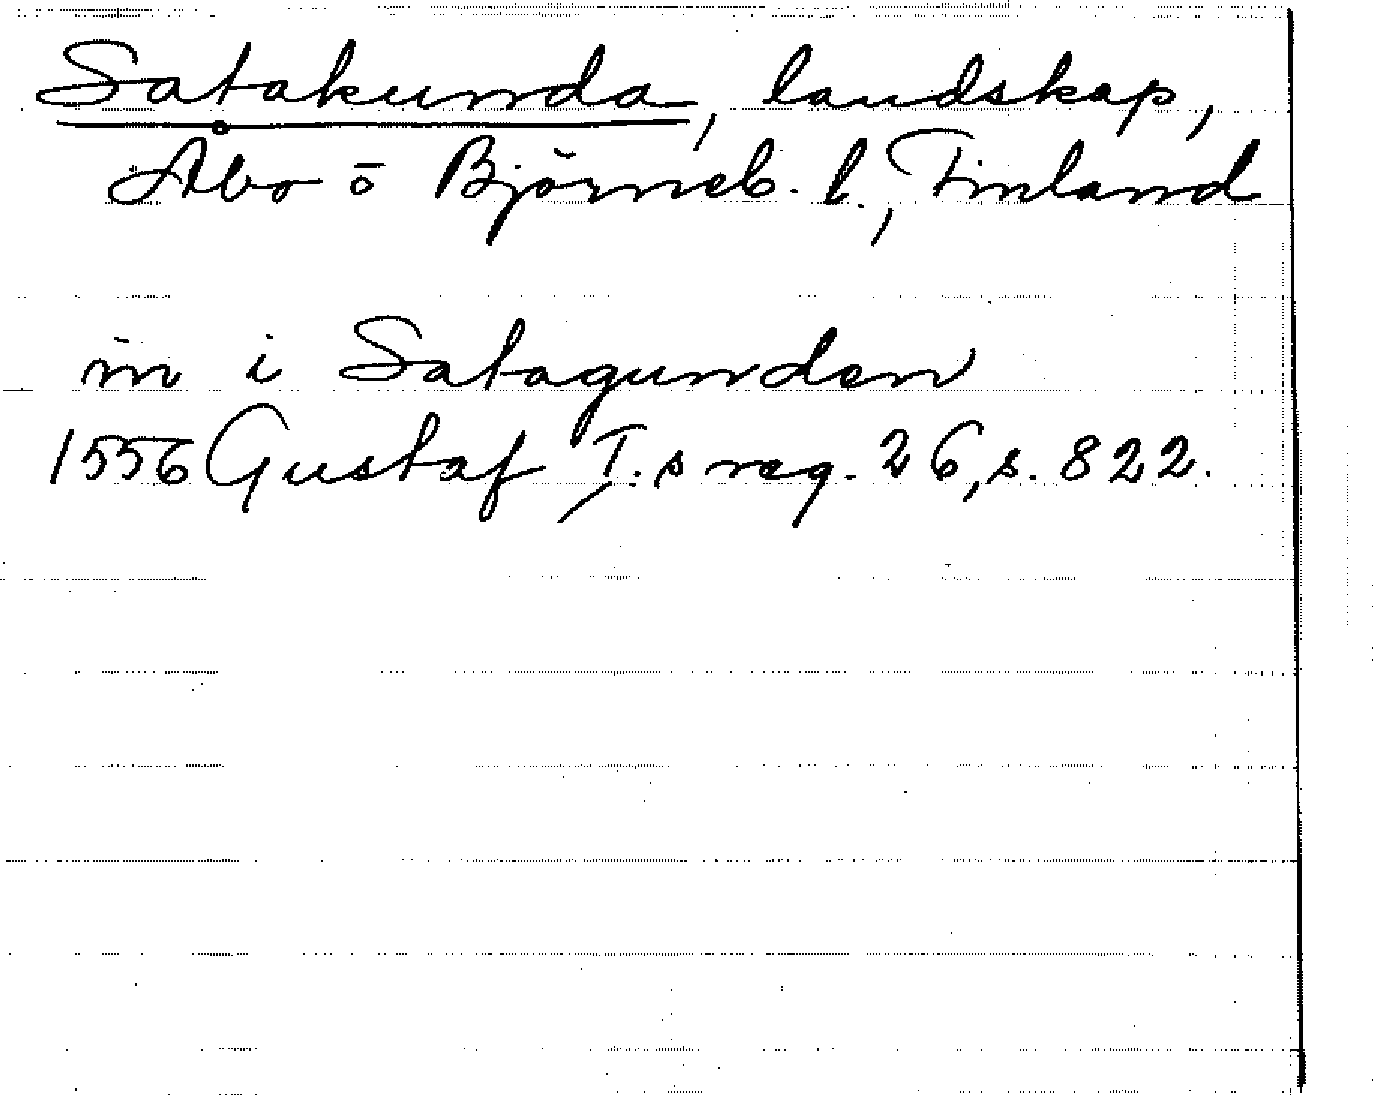 Satakunda, landskap,
Åbo o Björneb. l., Finland
in i Satagunden
1556 Gustaf I:s reg. 26, s. 822.